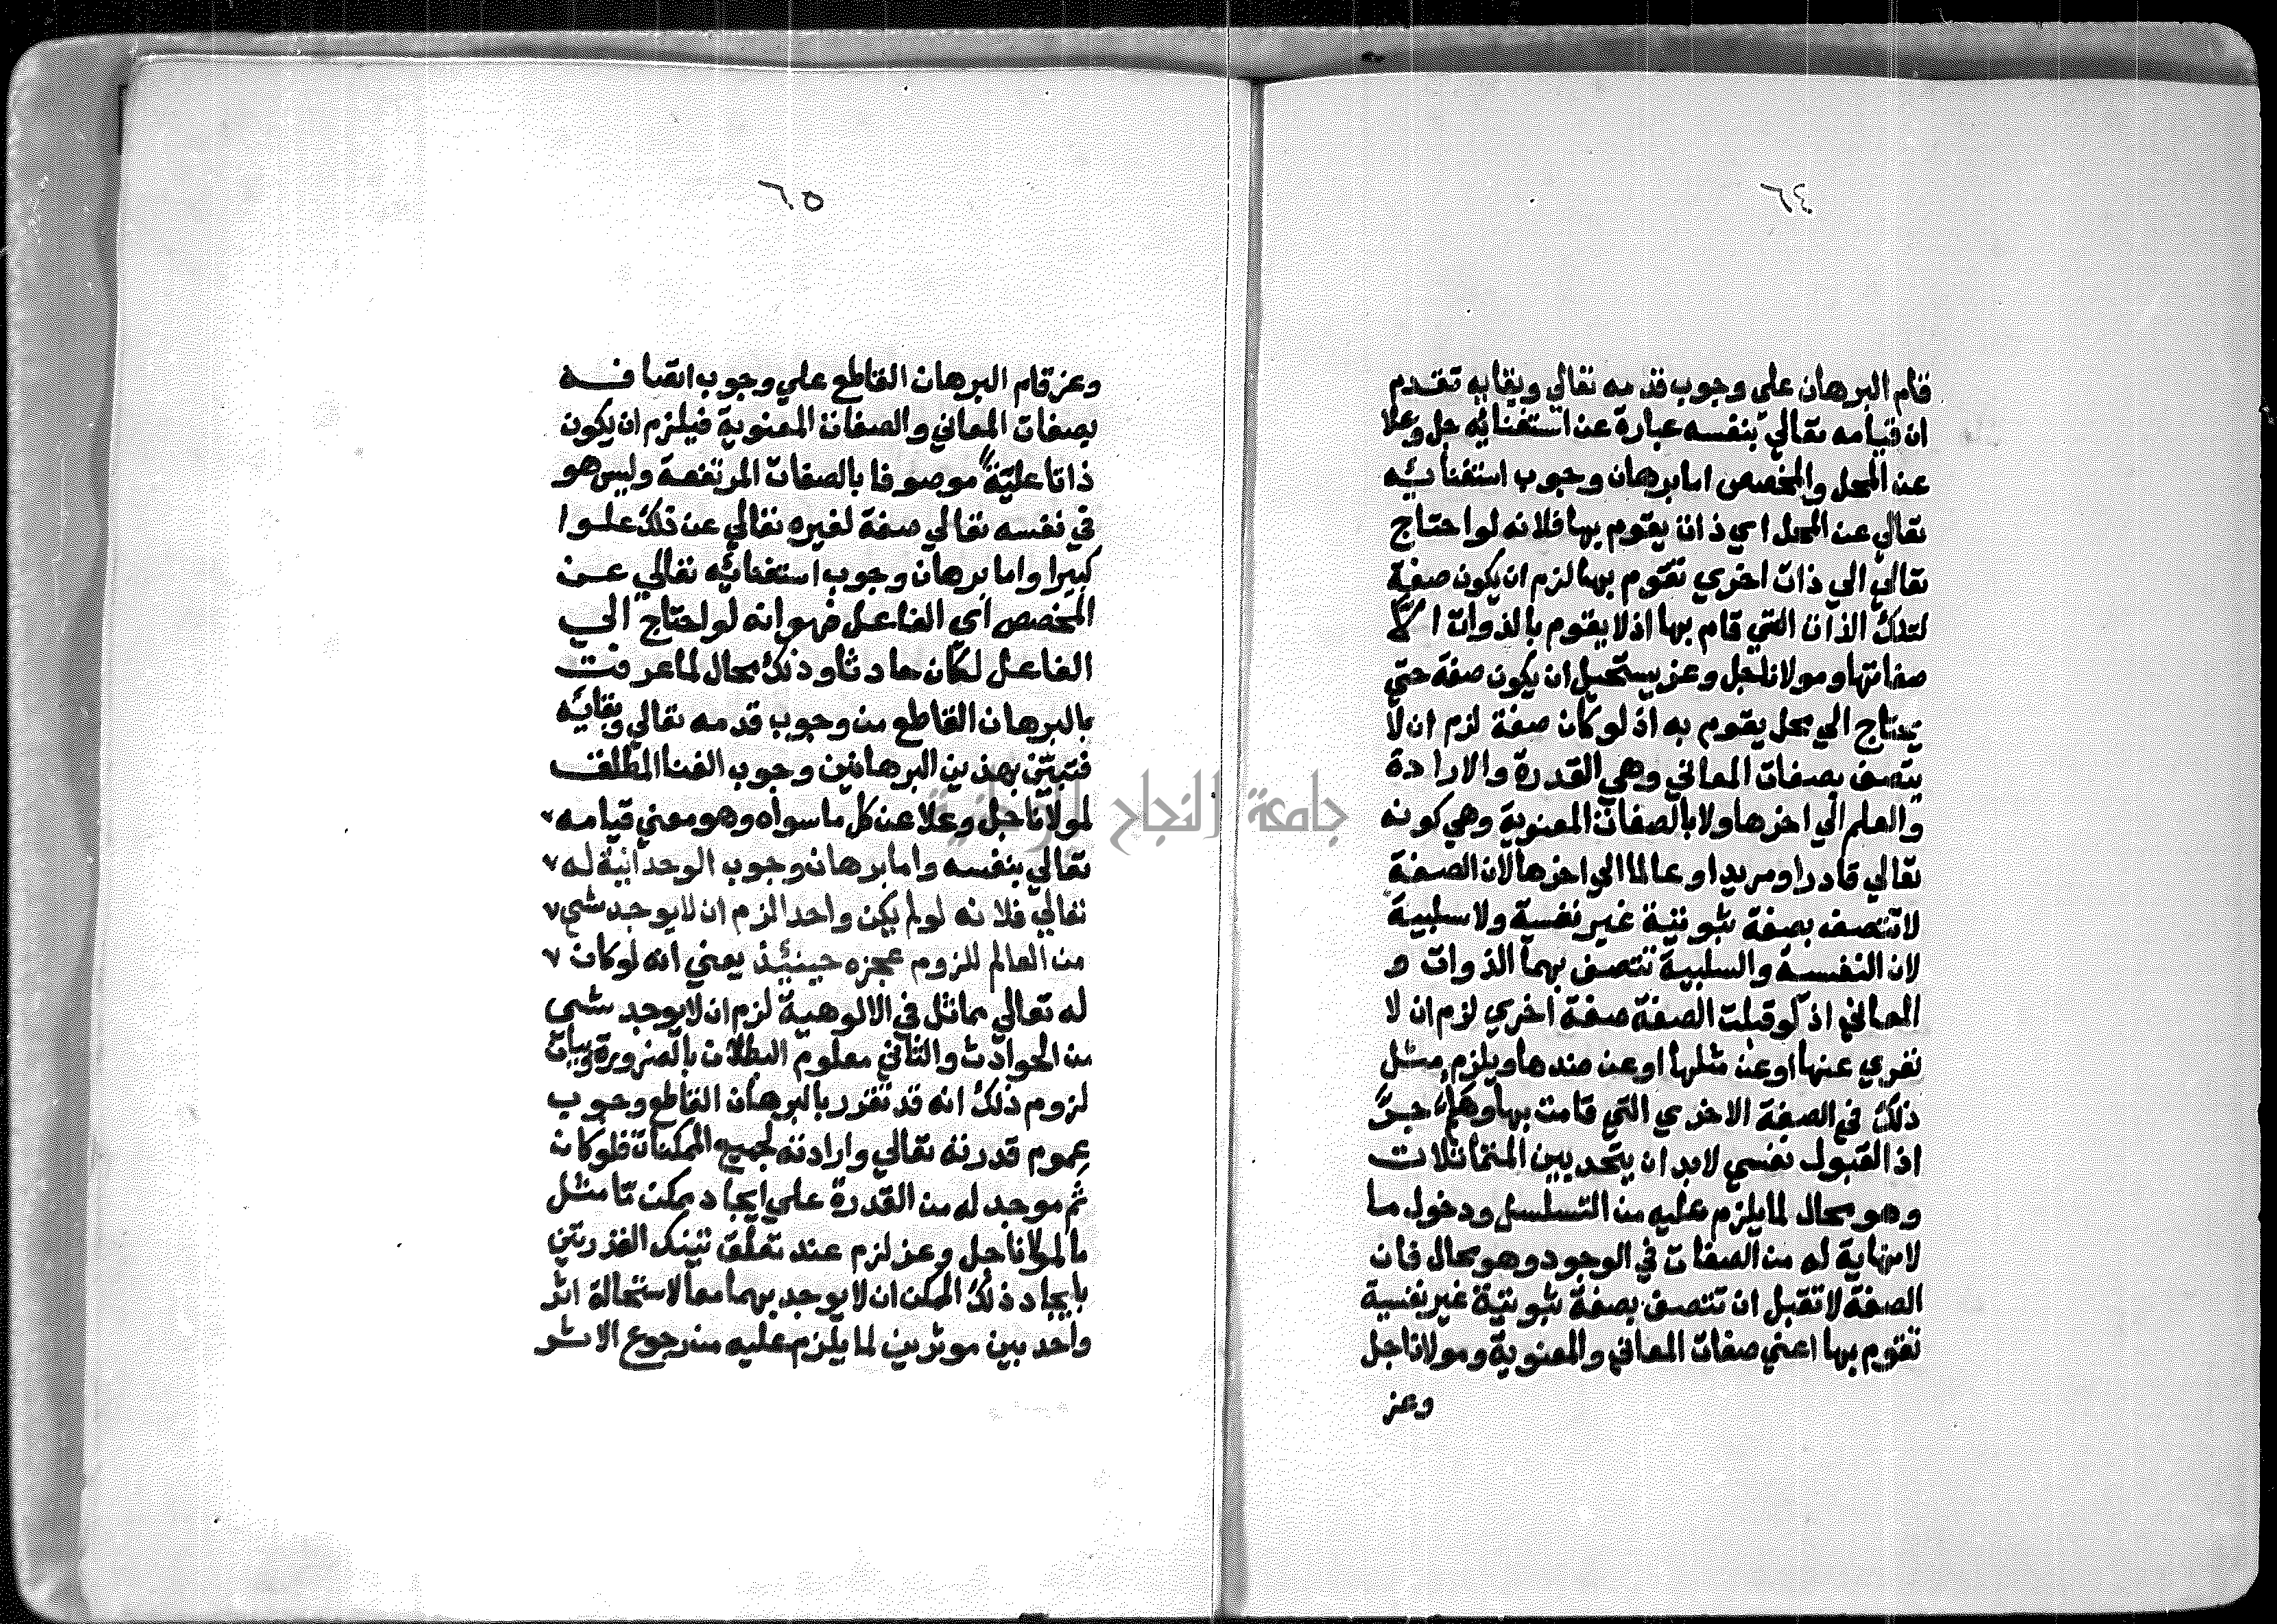 ٦٤
قام البرهان علي وجوب قدمه تعالي وبقايه تقدم
ان قيامه تعالي بنفسه عبارة عن استغنايه جل وعلا
عن المحل والمخصص اما برهان وجوب استغنائه
تعالي عن المحل اي ذات يقوم بها فلانه لو احتاج
تعالي الي ذات اخري تقوم بها لزم ان يكون صفة
لتلك الذات التي قام بها اذ لا يقوم بالذوات الا
صفاتها ومولانا جل وعز يستحيل ان يكون صفة حتي
يحتاج الي محل يقوم به اذ لو كان صفة لزم ان لا
يتصف بصفات المعاني وهي القدرة والارادة
والعلم الي اخرها ولا بالصفات المعنوية وهي كونه
تعالي قادرا ومريدا وعالما الي اخرها لان الصفة
لا تتصف بصفة ثبوتية غير نفسية ولا سلبية
لان النفسية والسلبية تتصف بهما الذوات و
المعاني اذ لو قبلت الصفة صفة اخري لزم ان لا
تعري عنها او عن مثلها او عن ضدها ويلزم مثل
ذلك في الصفة الاخري التي قامت بها وهلم جرا
اذ القبول نفسي لابد ان يتحد بين المتماثلات
وهو محال لما يلزم عليه من التسلسل ودخول ما
لا نهاية له من الصفات في الوجود وهو محال فان
الصفة لا تقبل ان تتصف بصفة ثبوتية غير نفسية
تقوم بها اعني صفات المعاني والمعنوية ومولانا جل
وعز
٦٥
وعز قام البرهان القاطع علي وجوب اتصافه
بصفات المعاني والصفات المعنوية فيلزم ان يكون
ذاتا علية موصوفا بالصفات المرتفعة وليس هو
في نفسه تعالي صفة لغيره تعالي عن ذلك علوا
كبيرا واما برهان وجوب استغنائه تعالي عن
المخصص اي الفاعل فهو انه لو احتاج الي
الفاعل لكان حادثا وذلك محال لما عرفت
بالبرهان القاطع من وجوب قدمه تعالي وبقائه
فتبين بهذين البرهانين وجوب الغنا المطلق
لمولانا جل وعلا عن كل ما سواه وهو معني قيامه
تعالي بنفسه واما برهان وجوب الوحدانية له
تعالي فلانه لو لم يكن واحدا لزم ان لا يوجد شي
من العالم للزوم عجزه حينئذ يعني انه لو كان
له تعالي مماثل في الالوهية لزم ان لا يوجد شي
من الحوادث والثاني معلوم البطلان بالضرورة وبيان
لزوم ذلك انه قد تقرر بالبرهان القاطع وجوب
عموم قدرته تعالي وارادته لجميع الممكنات فلو كان
ثم موجد له من القدرة علي ايجاد ممكن ما مثل
ما لمولانا جل وعز لزم عند تعلق تينك القدرتين
بايجاد ذلك الممكن ان لا يوجد بهما معا لاستحالة اثر
واحد بين موثرين لما يلزم عليه من رجوع الاثر
جامعة النجاح الوطنية